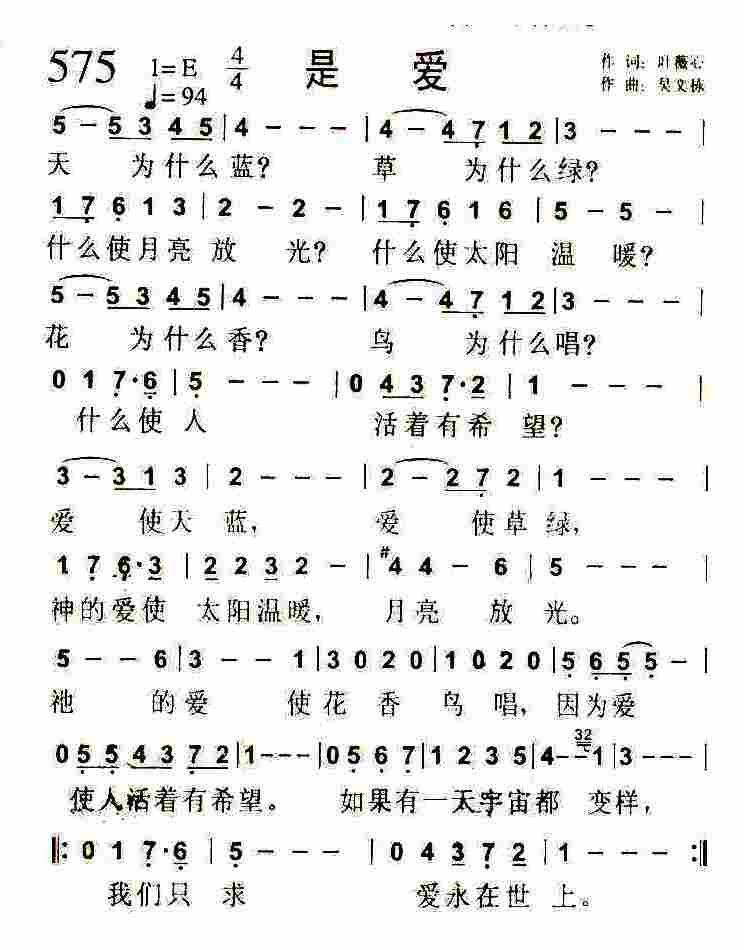 575 1=E 4/4 是 爱 作 词: 叶薇心
♩=94 作 曲: 吴文栋
5 – 5 3 4 5 | 4 – – – | 4 – 4 7 1 2 | 3 – – – |
天 为什么蓝? 草 为什么绿?
1 7 6 1 3 | 2 – 2 – | 1 7 6 1 6 | 5 – 5 – |
什么使月亮 放 光? 什么使太阳 温 暖?
5 – 5 3 4 5 | 4 – – – | 4 – 4 7 1 2 | 3 – – – |
花 为什么香? 鸟 为什么唱?
0 1 7 · 6 | 5 – – – | 0 4 3 7 · 2 | 1 – – – |
什么使 人 活着有希 望?
3 – 3 1 3 | 2 – – – | 2 – 2 7 2 | 1 – – – |
爱 使天 蓝, 爱 使草 绿,
1 7 6 · 3 | 2 2 3 2 – | #4 4 – 6 | 5 – – – |
神的爱使 太阳温暖, 月亮 放 光。
5 – – 6 | 3 – – 1 | 3 0 2 0 | 1 0 2 0 | 5 6 5 5 – |
祂 的爱 使花 香 鸟 唱, 因为爱
0 5 5 4 3 7 2 | 1 – – – | 0 5 6 7 | 1 2 3 5 | 4 – – 32 1 | 3 – – – |
使人活着有希望。 如果有一天宇宙都 变样,
‖: 0 1 7 · 6 | 5 – – – | 0 4 3 7 2 | 1 – – – :‖
我们只 求 爱永在世 上。